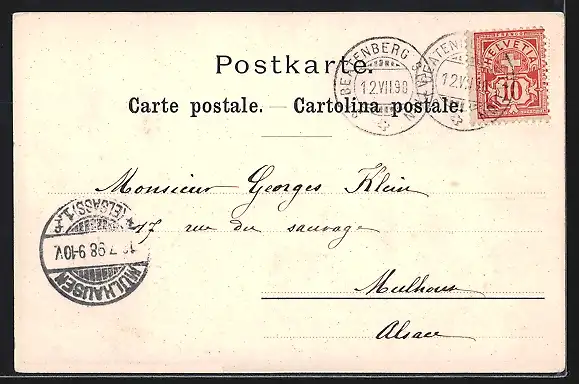 Postkarte.
Carte postale. — Cartolina postale.
BEATENBERG
12.VII.98
BEATENB
12.VII
FRANCO
HELVETIA
10
Monsieur Georges Klein
17 rue du sauvage
Mulhouse
Alsace
MÜLHAUSEN
7.98 9-10V.
(ELSASS) 1